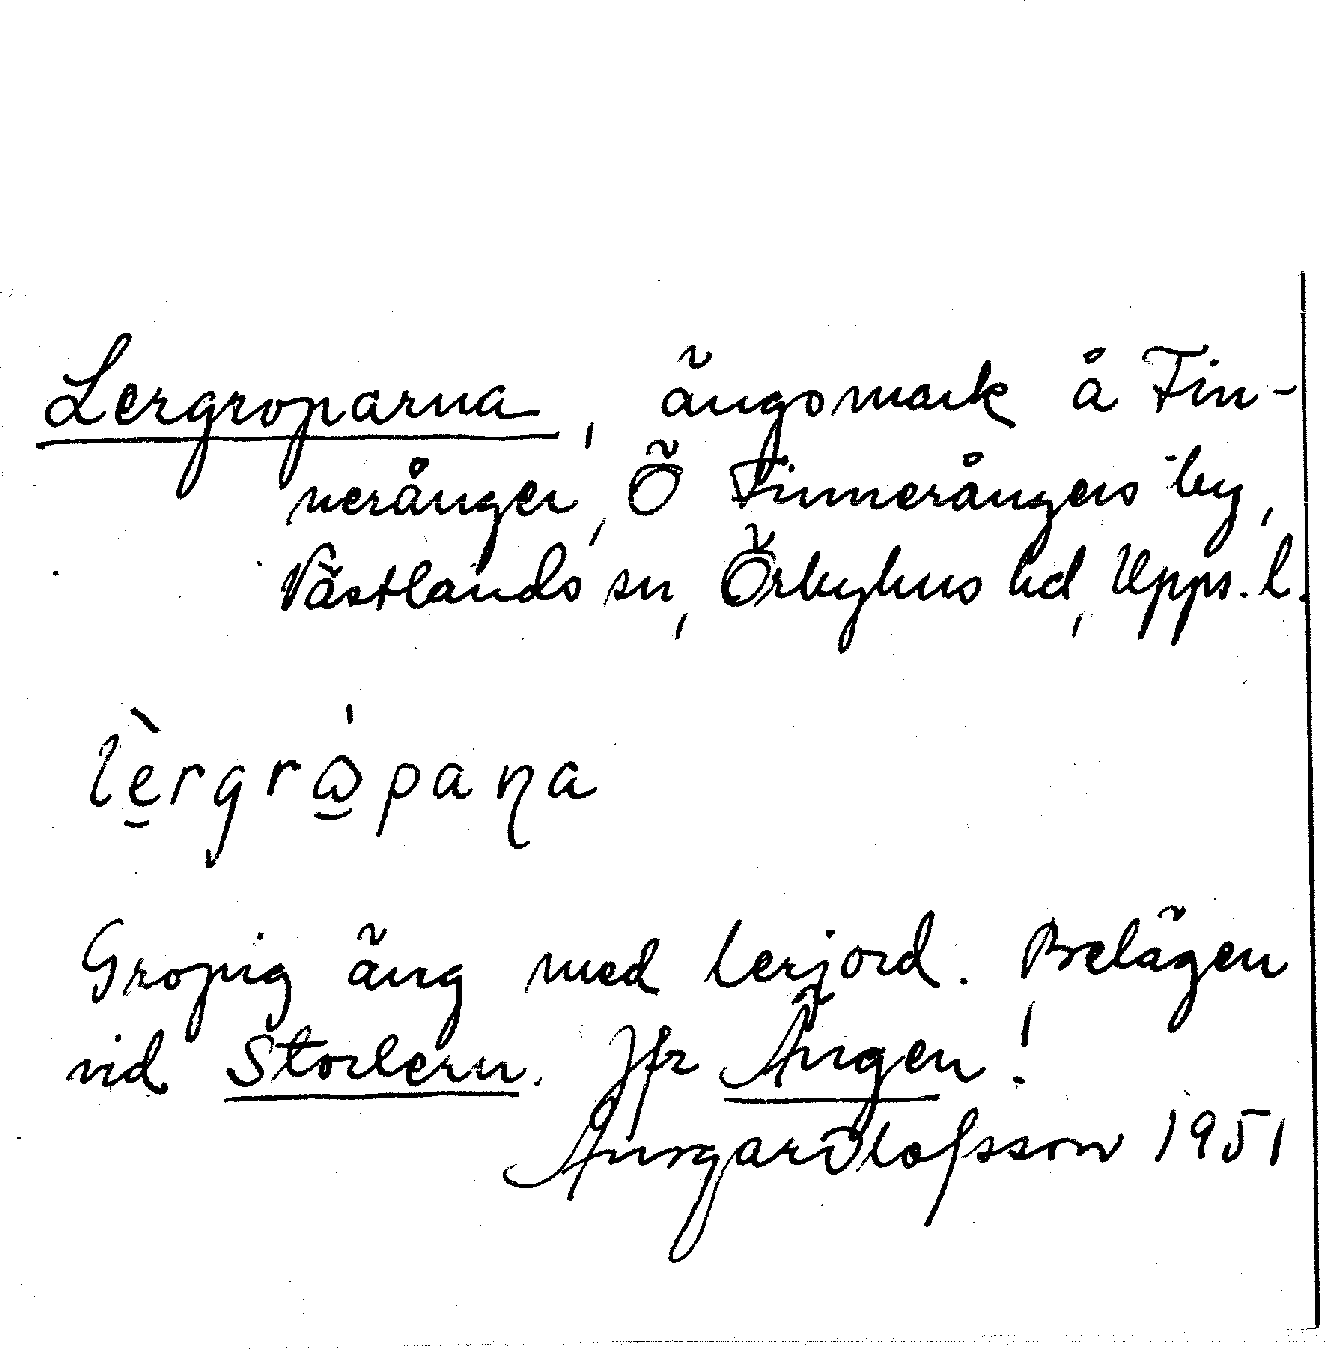 Lergroparna, ängsmark å Fin-
nerånger, Ö Finnerångers by,
Västlands sn, Örbyhus hd, Upps. l.
Gropig äng med lerjord. Belägen
vid Storlern. Jfr Ängen!
Ansgar Olofsson 1951